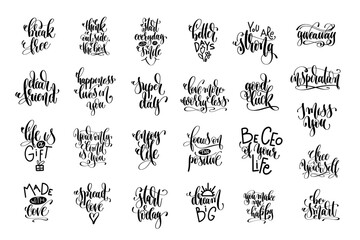 break
free
think
outside
the box
start
everyday
smile
better
DAYS
YOU ARE
strong
giveaway
dear
friend
happiness
lives in
you
super
day
love more
worry less
good
luck
inspiration
life is
GIFT
you
enjoy
life
focus on
THE
positive
BE CEO
of your
LIFE
i miss
you
free
yourself
MADE
WITH
love
spread
love
start
today
dream
BIG
you make
me
happy
be
smart